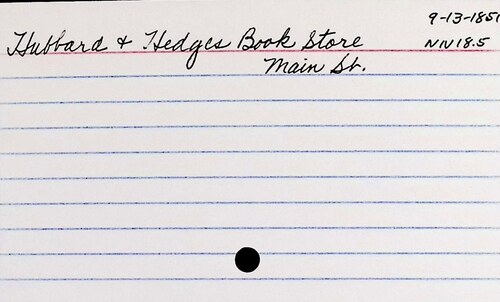 9-13-1850
Hubbard & Hedges Book Store
NIV 18.5
Main St.